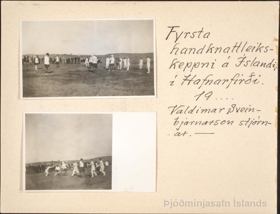 Fyrsta
handknattleiks-
keppni á Íslandi,
í Hafnarfirði.
19....
Valdimar Svein-
bjarnarson stjórn-
ar.—
Þjóðminjasafn Íslands